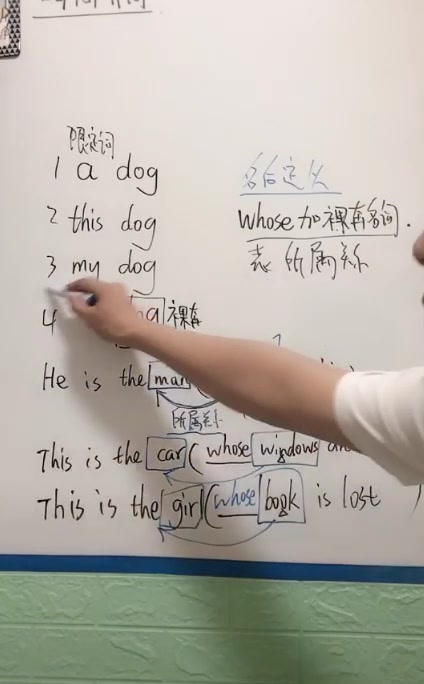 限定词
1 a dog
名后定从
2 this dog
whose 加裸奔名词.
3 my dog
表 所属关系
4 裸奔
He is the man
所属关系
This is the car (whose windows
This is the girl (whose book is lost )